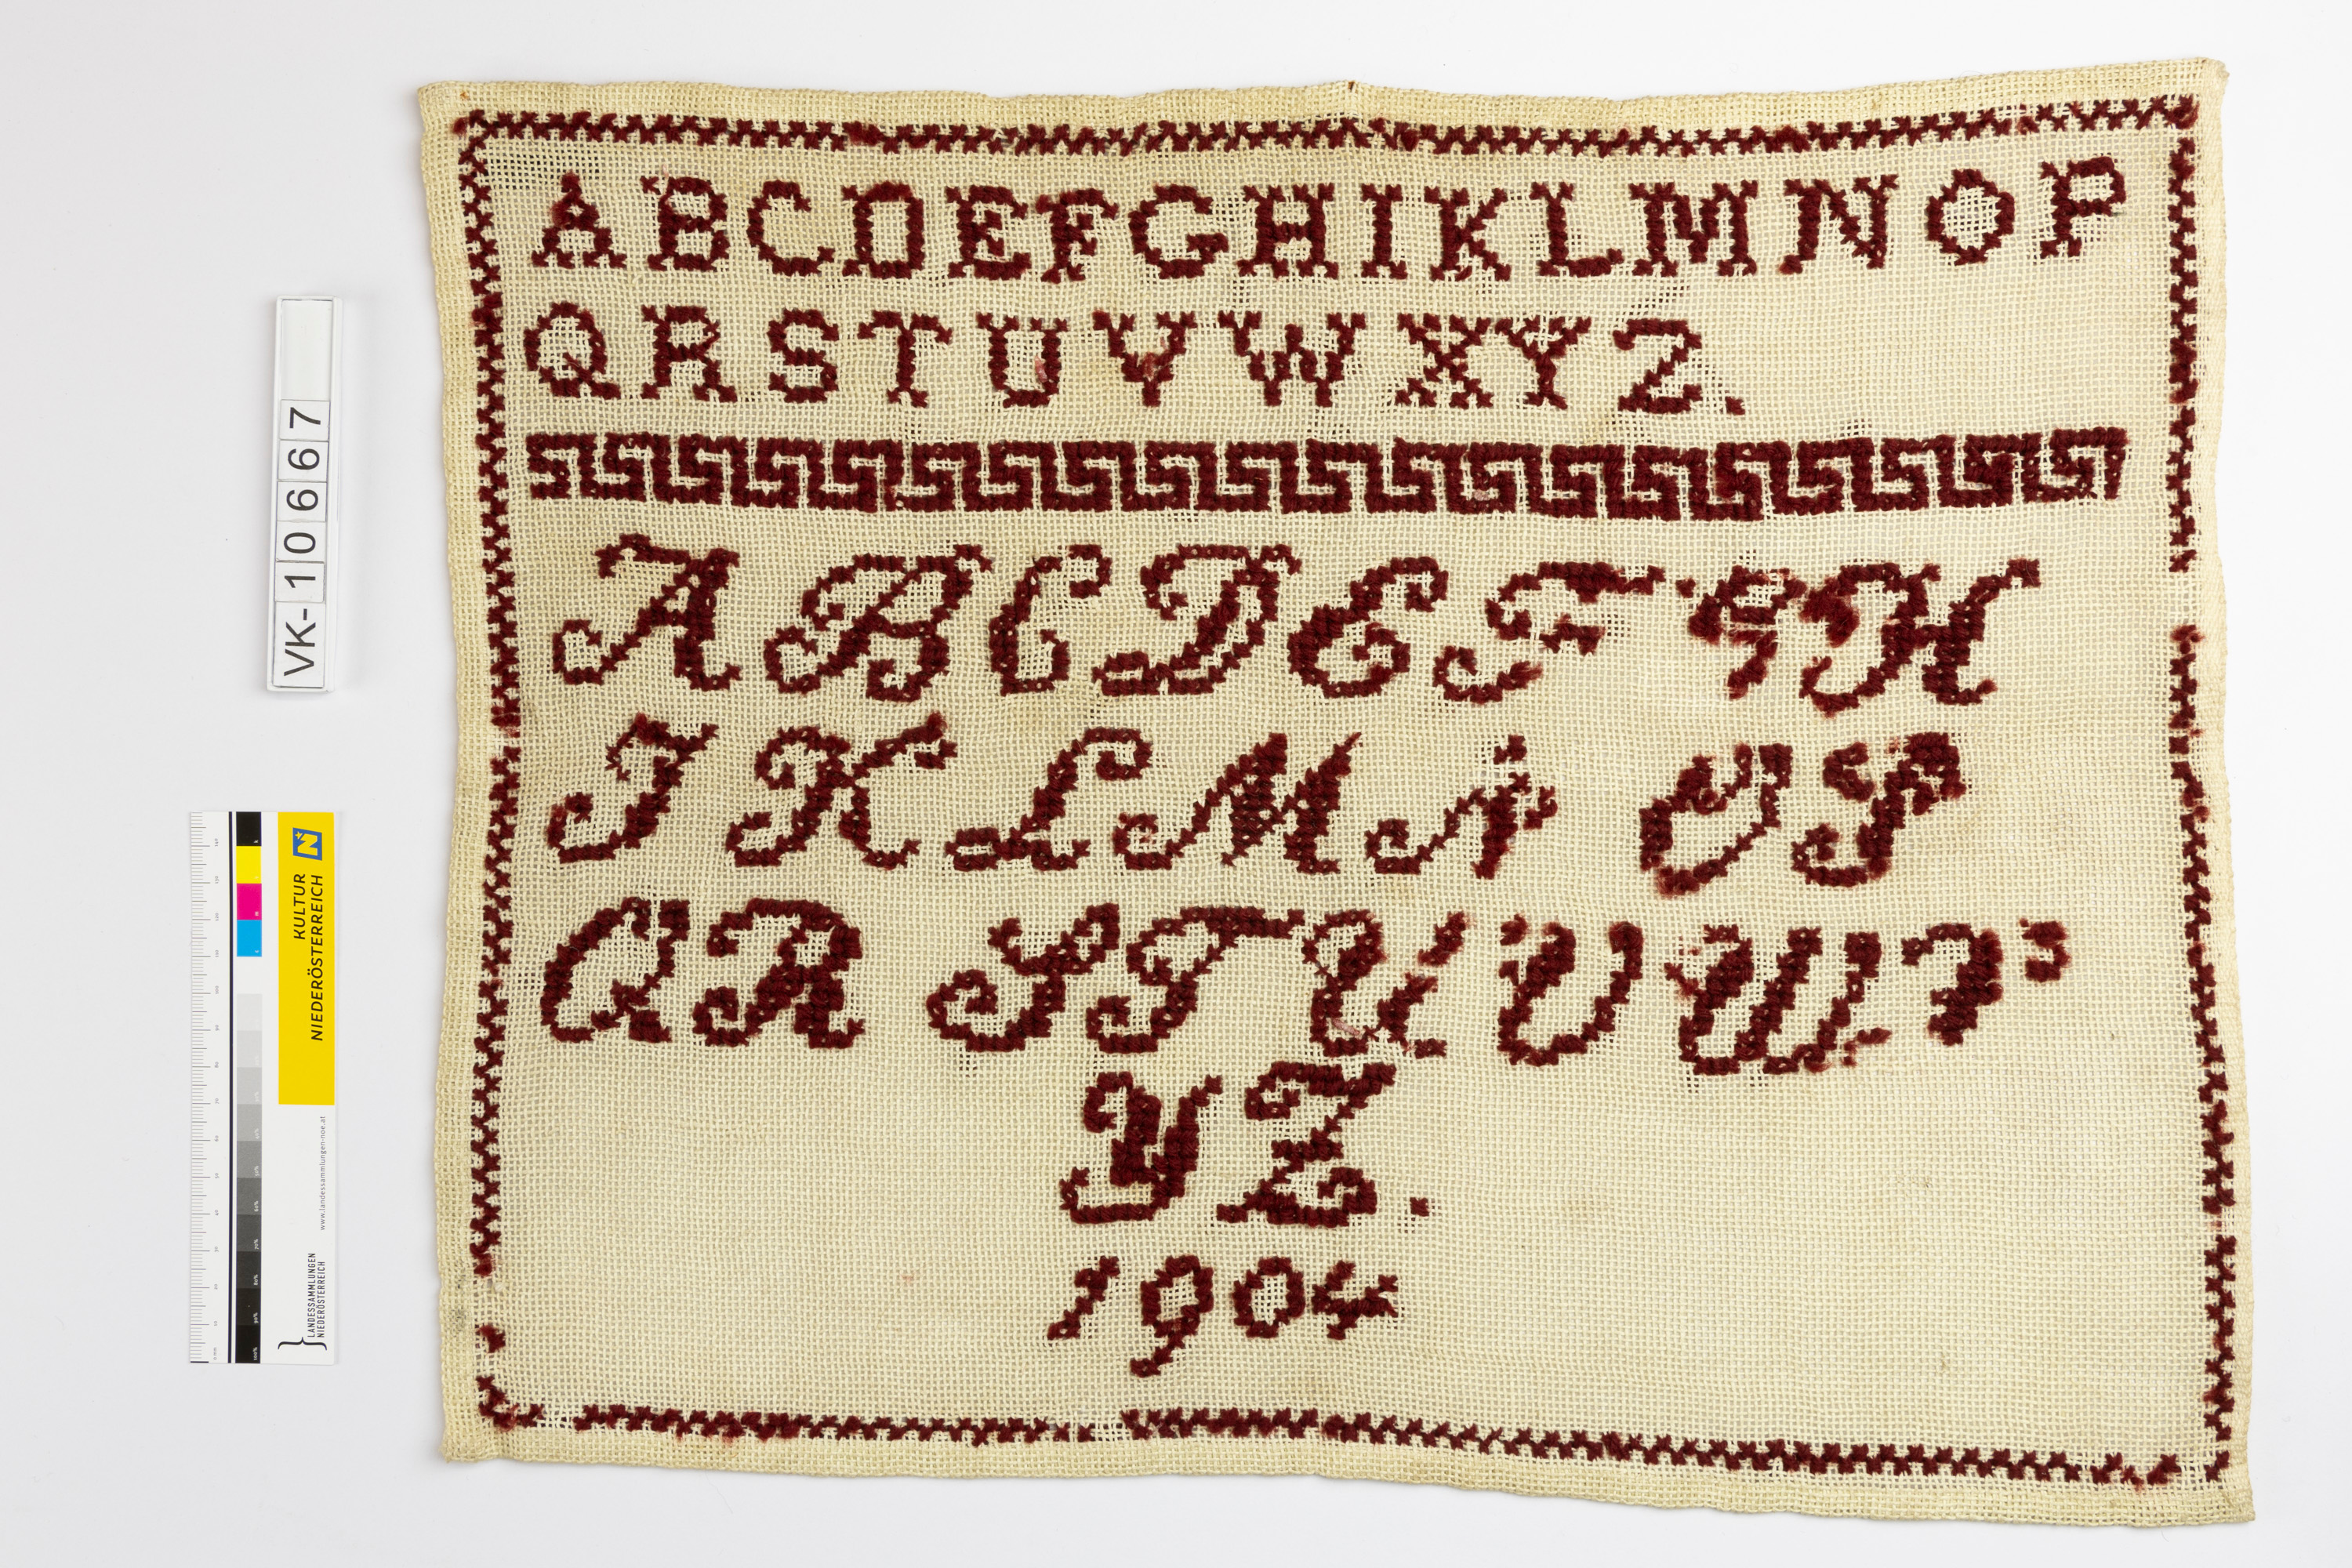 ABCDEFGHIKLMNOP
QRSTUVWXYZ.
ABCDEFGH
IKLMNOP
QRSTUVWX
YZ.
1904
VK-10667
KULTUR
NIEDERÖSTERREICH
www.landessammlungen-noe.at
LANDESSAMMLUNGEN
NIEDERÖSTERREICH